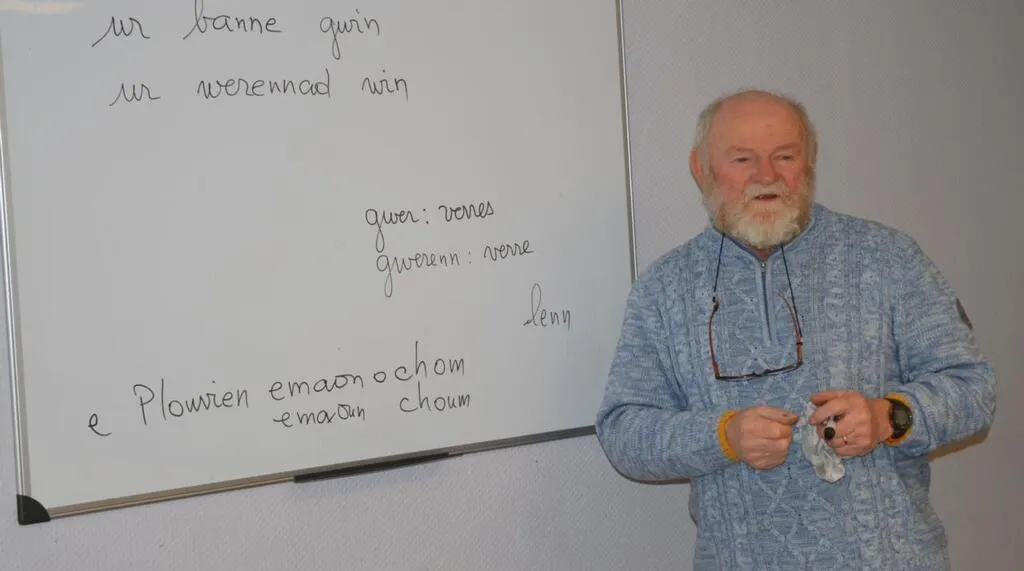 ur banne gwin
ur werennad win
gwer: verres
gwerenn: verre
lenn
e Plouvien emaon o chom
emaoun choum